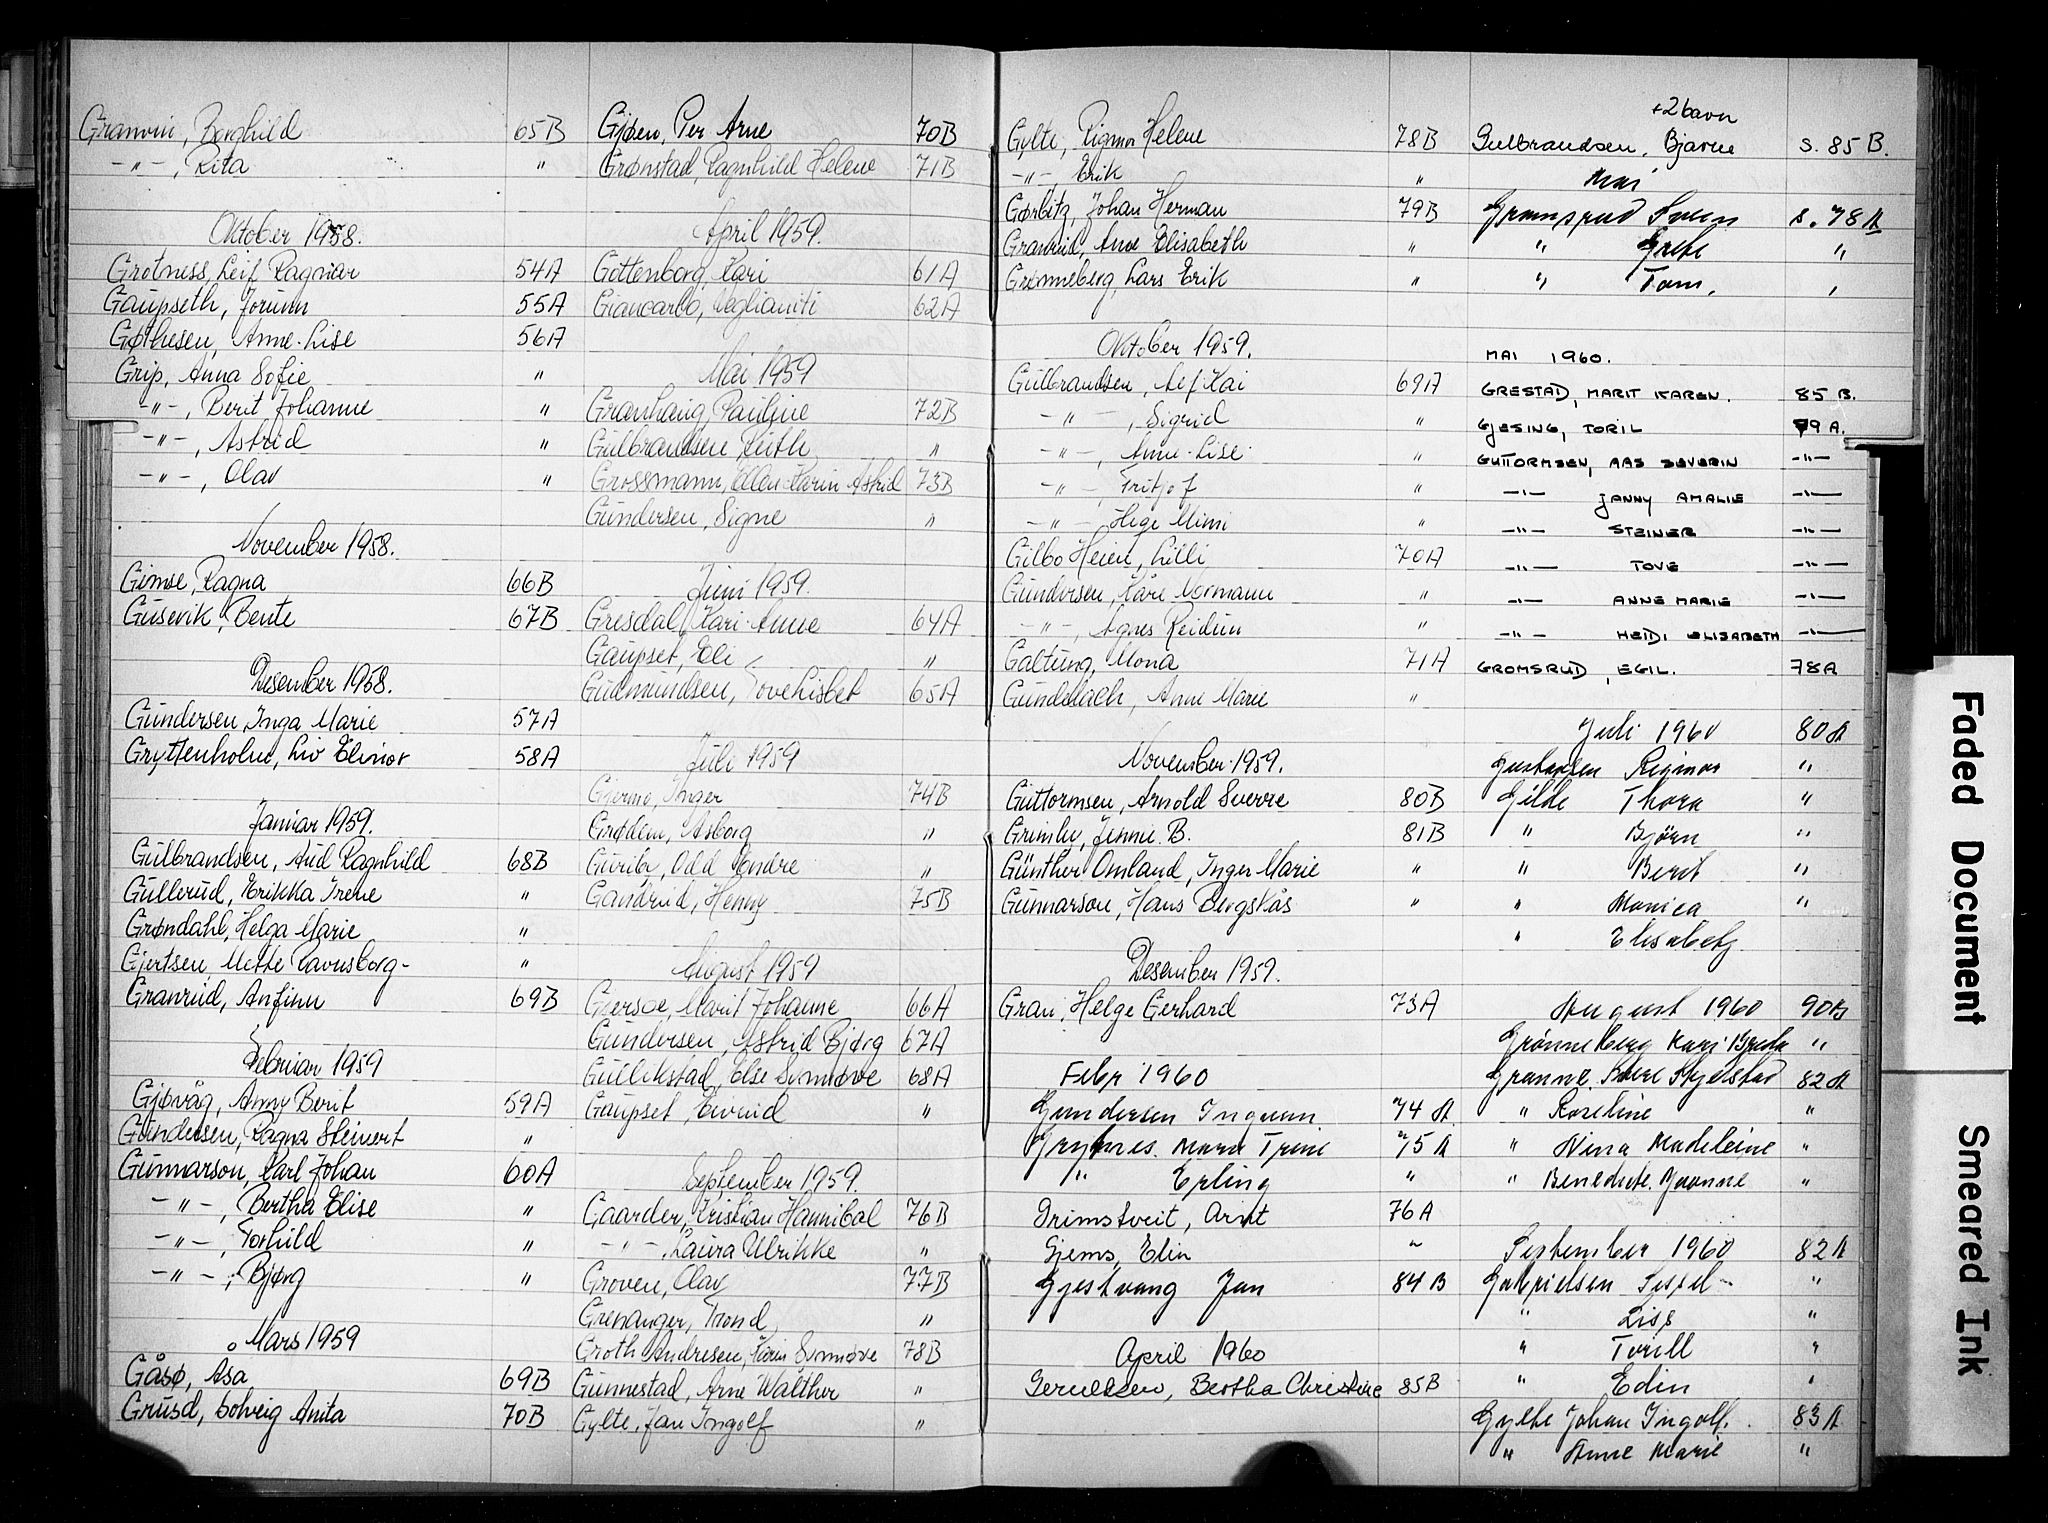 Granvin, Borghild 65B
-"-, Rita "
Oktober 1958.
Grotness, Leif Ragnar 54A
Gaupseth, Jorunn 55A
Gøthesen, Anne-Lise 56A
Grip, Anna Sofie "
-"-, Berit Johanne "
-"-, Astrid "
-"-, Olav "
November 1958.
Gimse, Ragna 66B
Gusevik, Bente 67B
Desember 1958.
Gundersen, Inga Marie 57A
Gryttenholm, Liv Elinor 58A
Januar 1959.
Gulbrandsen, Aud Ragnhild 68B
Gullerud, Erikka Irene "
Grøndahl, Helga Marie "
Gjertsen, Mette Ravnsborg- "
Granrud, Anfinn 69B
Februar 1959
Gjøvåg, Anny Berit 59A
Gundersen, Ragna Steinert "
Gunnarson, Karl Johan 60A
-"-, Bertha Elise "
-"-, Torhild "
-"-, Bjørg "
Mars 1959
Gåsø, Asa 69B
Grusd, Solveig Anita 70B
Gjøen, Per Arne 70B
Grønstad, Ragnhild Helene 71B
April 1959.
Gottenborg, Kari 61A
Giancarlo, 62A
Mai 1959
Granhaug, Pauline 72B
Gulbrandsen, "
Grossmann, Ellen Karin Astrid 73B
Gundersen, Signe "
Juni 1959.
Gresdal, Kari-Anne 64A
Gaupset, Eli "
Gudmundsen, Tove Lisbet 65A
Juli 1959
Gjermo, Inger 74B
Grødem, Asborg "
Odd Sondre "
Gandrud, Henny 75B
August 1959
Marit Johanne 66A
Gundersen, Astrid Bjørg 67A
Gullikstad, Else Synnøve 68A
Gaupset, Eivind "
September 1959.
Gaarder, Kristian Hannibal 76B
-"-, Laura Ulrikke "
Groven, Olav 77B
Grenanger, Trond "
Groth Andresen, Karin Synnøve 78B
Gunnestad, Arne Walther "
Gylte, Jan Ingolf "
Gylte, Rigmor Helene 78B
-"-, Erik "
Gørbitz, Johan Herman 79B
Granrud, Anne Elisabeth "
Grønneberg, Lars Erik "
Oktober 1959.
Gulbrandsen, Leif Kai 69A
-"-, Sigrid "
-"-, Anne-Lise "
-"-, Fritjof "
-"-, Hege Mimi "
Gilbo Heien, Lilli 70A
Gundersen, Kåre Normann "
-"-, Agnes Reidun "
Galtung, Mona 71A
Gundelach, Anne Marie "
November 1959.
Guttormsen, Arnold Sverre 80B
Grimley, Jennie B. 81B
Günther Omland, Inger Marie "
Gunnarson, Hans Bergskås "
Desember 1959.
Gran, Helge Gerhard 73A
Febr 1960
Gundersen Ingunn 74A
Grytnes. Mara Trine 75A
" Erling "
Grimstveit, Arnt 76A
Gjems, Elin "
Gjestvang Jan 84B
April 1960
Bertha Christine 85B
+2 barn
Gulbrandsen, Bjarne s. 85 B.
Mai
Gromsrud Svein s. 78A
" Grete "
" Tom, "
MAI 1960.
GRESTAD, MARIT KAREN. 85 B.
GJESING, TORIL 79 A.
GUTTORMSEN, AAS SEVERIN -"-
-"- JANNY AMALIE -"-
-"- STEINER -"-
-"- TOVE -"-
-"- ANNE MARIE -"-
-"- HEIDI ELISABETH -"-
GROMSRUD, EGIL. 78A
Juli 1960 80A
Gustavsen Rigmor "
Gilde Thora "
" Bjørn "
" Berit "
" Monica "
" Elisabeth
August 1960 90B
Grønneberg Kari "
Granne. Kåre Skjelstad 82A
" Roseline "
" Nina Madeleine "
" Benedicte Yvonne "
September 1960 82A
Gabrielsen Sissel "
" Liss "
" Torill "
" Edin "
Gylte Johan Ingolf. 83A
" Anne Marie "
Faded Document
Smeared Ink